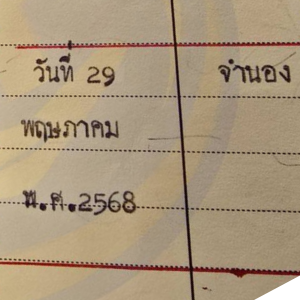 วันที่ 29 จำนอง
พฤษภาคม
พ.ศ.2568